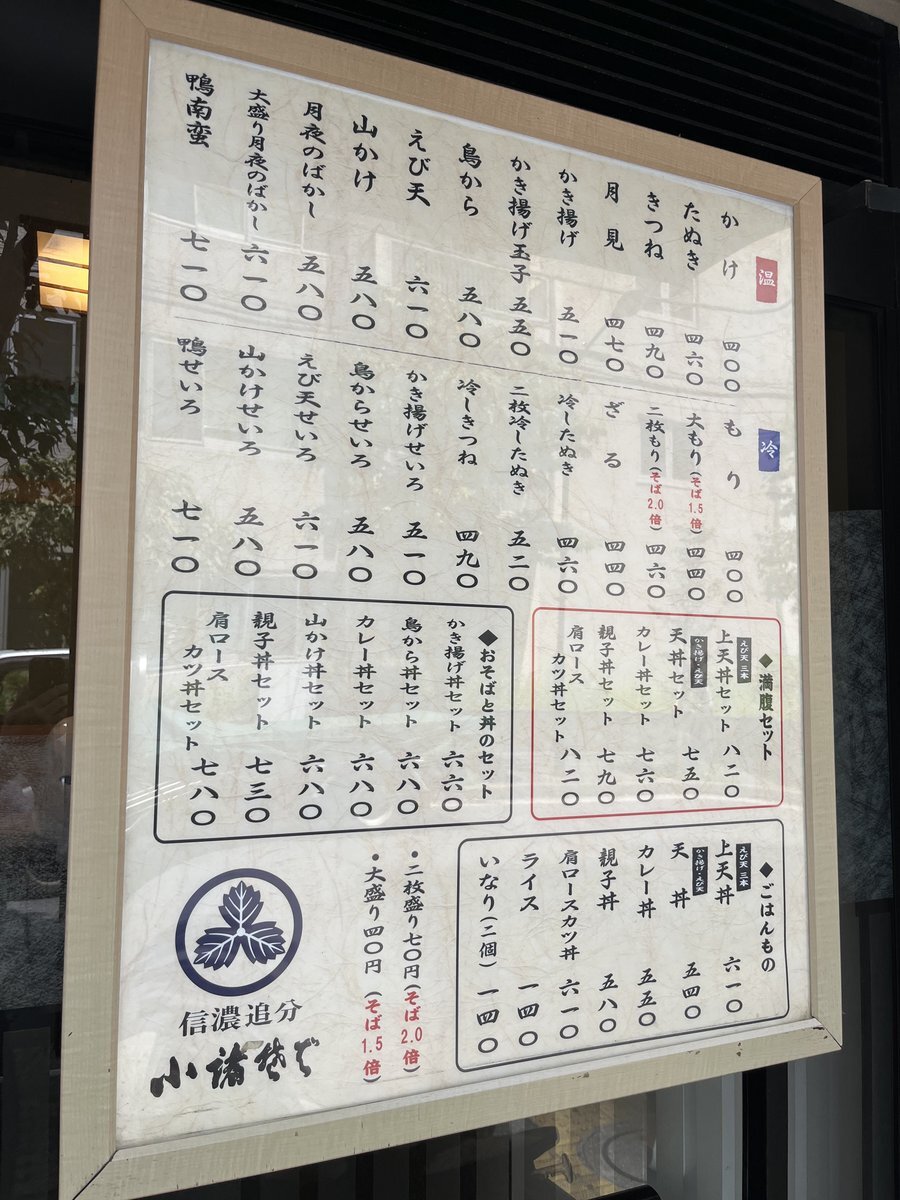 温
かけ 四〇〇
たぬき 四六〇
きつね 四九〇
月見 四七〇
かき揚げ 五一〇
かき揚げ玉子 五五〇
鳥から 五八〇
えび天 六一〇
山かけ 五八〇
月夜のばかし 五八〇
大盛り月夜のばかし 六一〇
鴨南蛮 七一〇
冷
もり 四〇〇
大もり(そば1.5倍) 四四〇
二枚もり(そば2.0倍) 四六〇
ざる 四四〇
冷したぬき 四六〇
二枚冷したぬき 五二〇
冷しきつね 四九〇
かき揚げせいろ 五一〇
鳥からせいろ 五八〇
えび天せいろ 六一〇
山かけせいろ 五八〇
鴨せいろ 七一〇
◆満腹セット
えび天 三本
上天丼セット 八二〇
かき揚げ・えび天
天丼セット 七五〇
カレー丼セット 七六〇
親子丼セット 七九〇
肩ロース
カツ丼セット 八二〇
◆おそばと丼のセット
かき揚げ丼セット 六六〇
鳥から丼セット 六八〇
カレー丼セット 六八〇
山かけ丼セット 六八〇
親子丼セット 七三〇
肩ロース
カツ丼セット 七八〇
◆ごはんもの
えび天 三本
上天丼 六一〇
かき揚げ・えび天
天丼 五四〇
カレー丼 五五〇
親子丼 五八〇
肩ロースカツ丼 六一〇
ライス 一四〇
いなり(二個) 一四〇
●二枚盛り七〇円(そば2.0倍)
●大盛り四〇円(そば1.5倍)
信濃追分
小諸そば